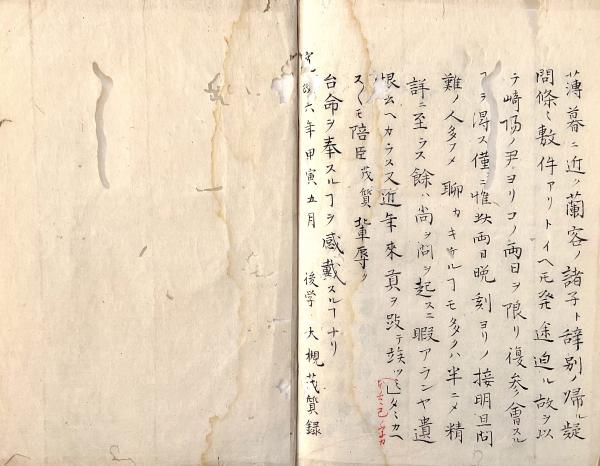 薄暮ニ近ツ蘭客ノ諸子ト辞別ノ帰ル疑
問條ミ敷件アリトイヘモ発途迫ル故ヲ以
テ崎陽ノ尹ヨリコノ両日ヲ限リ復参會スル
ヿヲ得ス僅ニ惟玆両日晩刻ヨリノ接明旦問
難ノ人多フメ聊カキ ルヿモ多クハ半ニメ精
詳ニ至ラス餘ハ尚ヲ問ヲ起スニ暇アランヤ遺
恨云ヘカラス又近年來貢ヲ
スヽモ陪臣茂質輩辱ク
台命ヲ奉スルヿヲ感戴スルヿナリ
寛政六年甲寅五月 後学 大槻茂質録